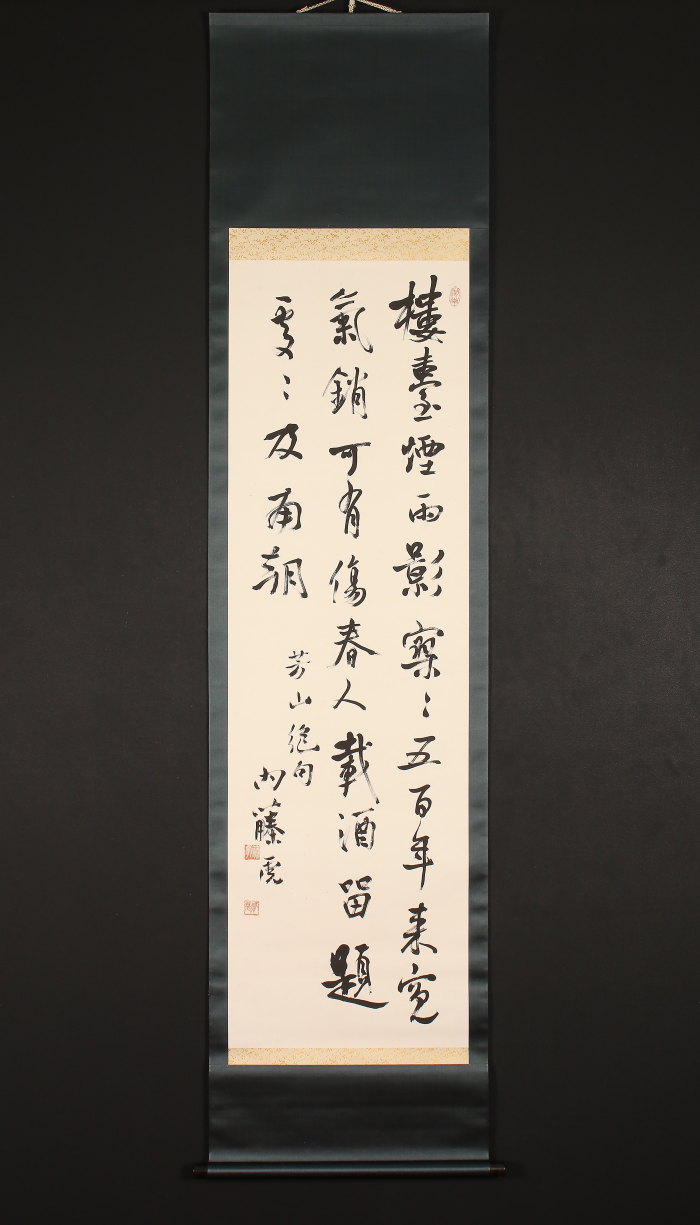 樓臺煙雨影寥〻五百年来寃
氣銷可有傷春人載酒留題
處〻及南朝
芳山絶句
内藤虎